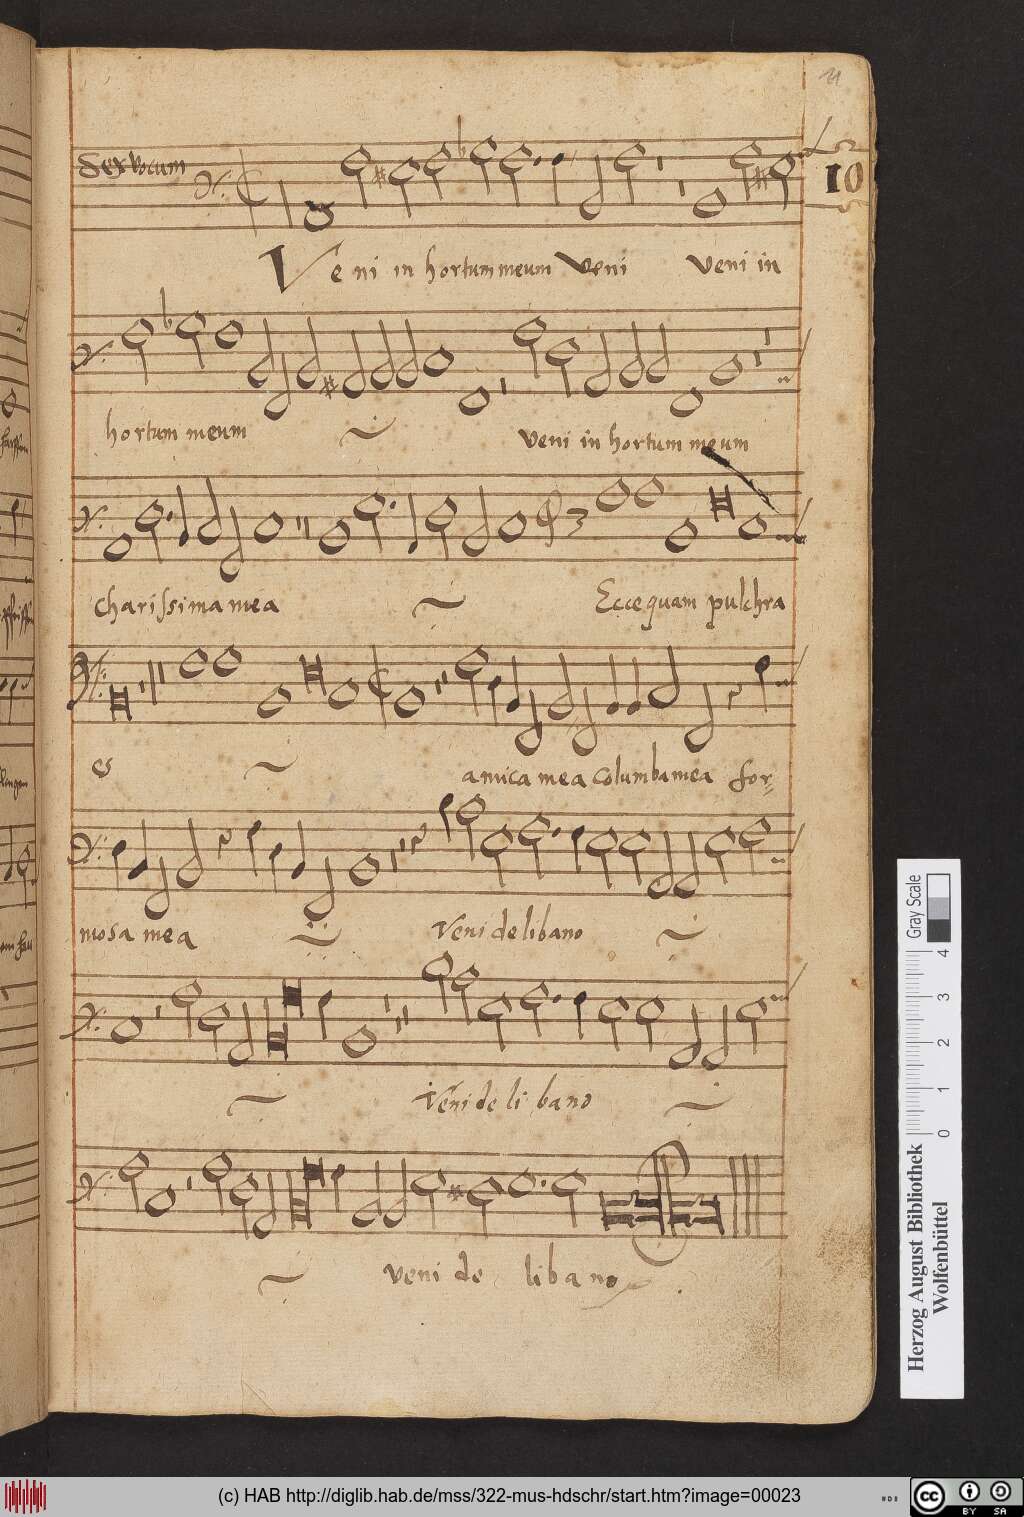 11
Sex vocum
10
Veni in hortum meum Veni Veni in
hortum meum veni in hortum meum
charissima mea Ecce quam pulchra
es amica mea Columba mea for=
mosa mea Veni de libano
Veni de libano
veni de libano
Gray Scale
0 1 2 3 4
Herzog August Bibliothek
Wolfenbüttel
(c) HAB http://diglib.hab.de/mss/322-mus-hdschr/start.htm?image=00023
cc
BY SA